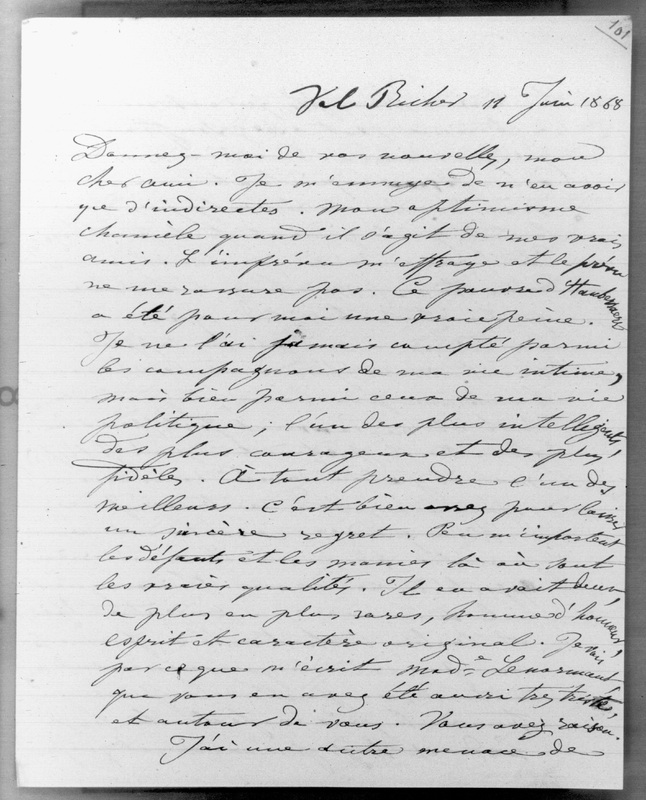 101
Val Richer 11 Juin 1868
Donnez-moi de vos nouvelles, mon
cher ami. Je m'ennuye de n'en avoir
que d'indirectes. Mon optimisme
chancèle quand il s'agit de mes vrais
amis. L'imprévu m'effraye et le prévu
ne me rassure pas. Ce pauvre d'Haubersaert
a été pour moi une vraie peine.
Je ne l'ai jamais compté parmi
les compagnons de ma vie intime,
mais bien parmi ceux de ma vie
politique ; l'un des plus intelligents,
des plus courageux et des plus
fidèles. À tout prendre l'un des
meilleurs. C'est bien assez pour laisser
un sincère regret. Peu m'importent
les défauts et les manies là où sont
les vraies qualités. Il en avait deux,
de plus en plus rares, homme d'honneur,
esprit et caractère original. Je vois
par ce que m'écrit Made Lenormant
que vous en avez été aussi très triste,
et autour de vous. Vous avez raison.
J'ai une autre menace de